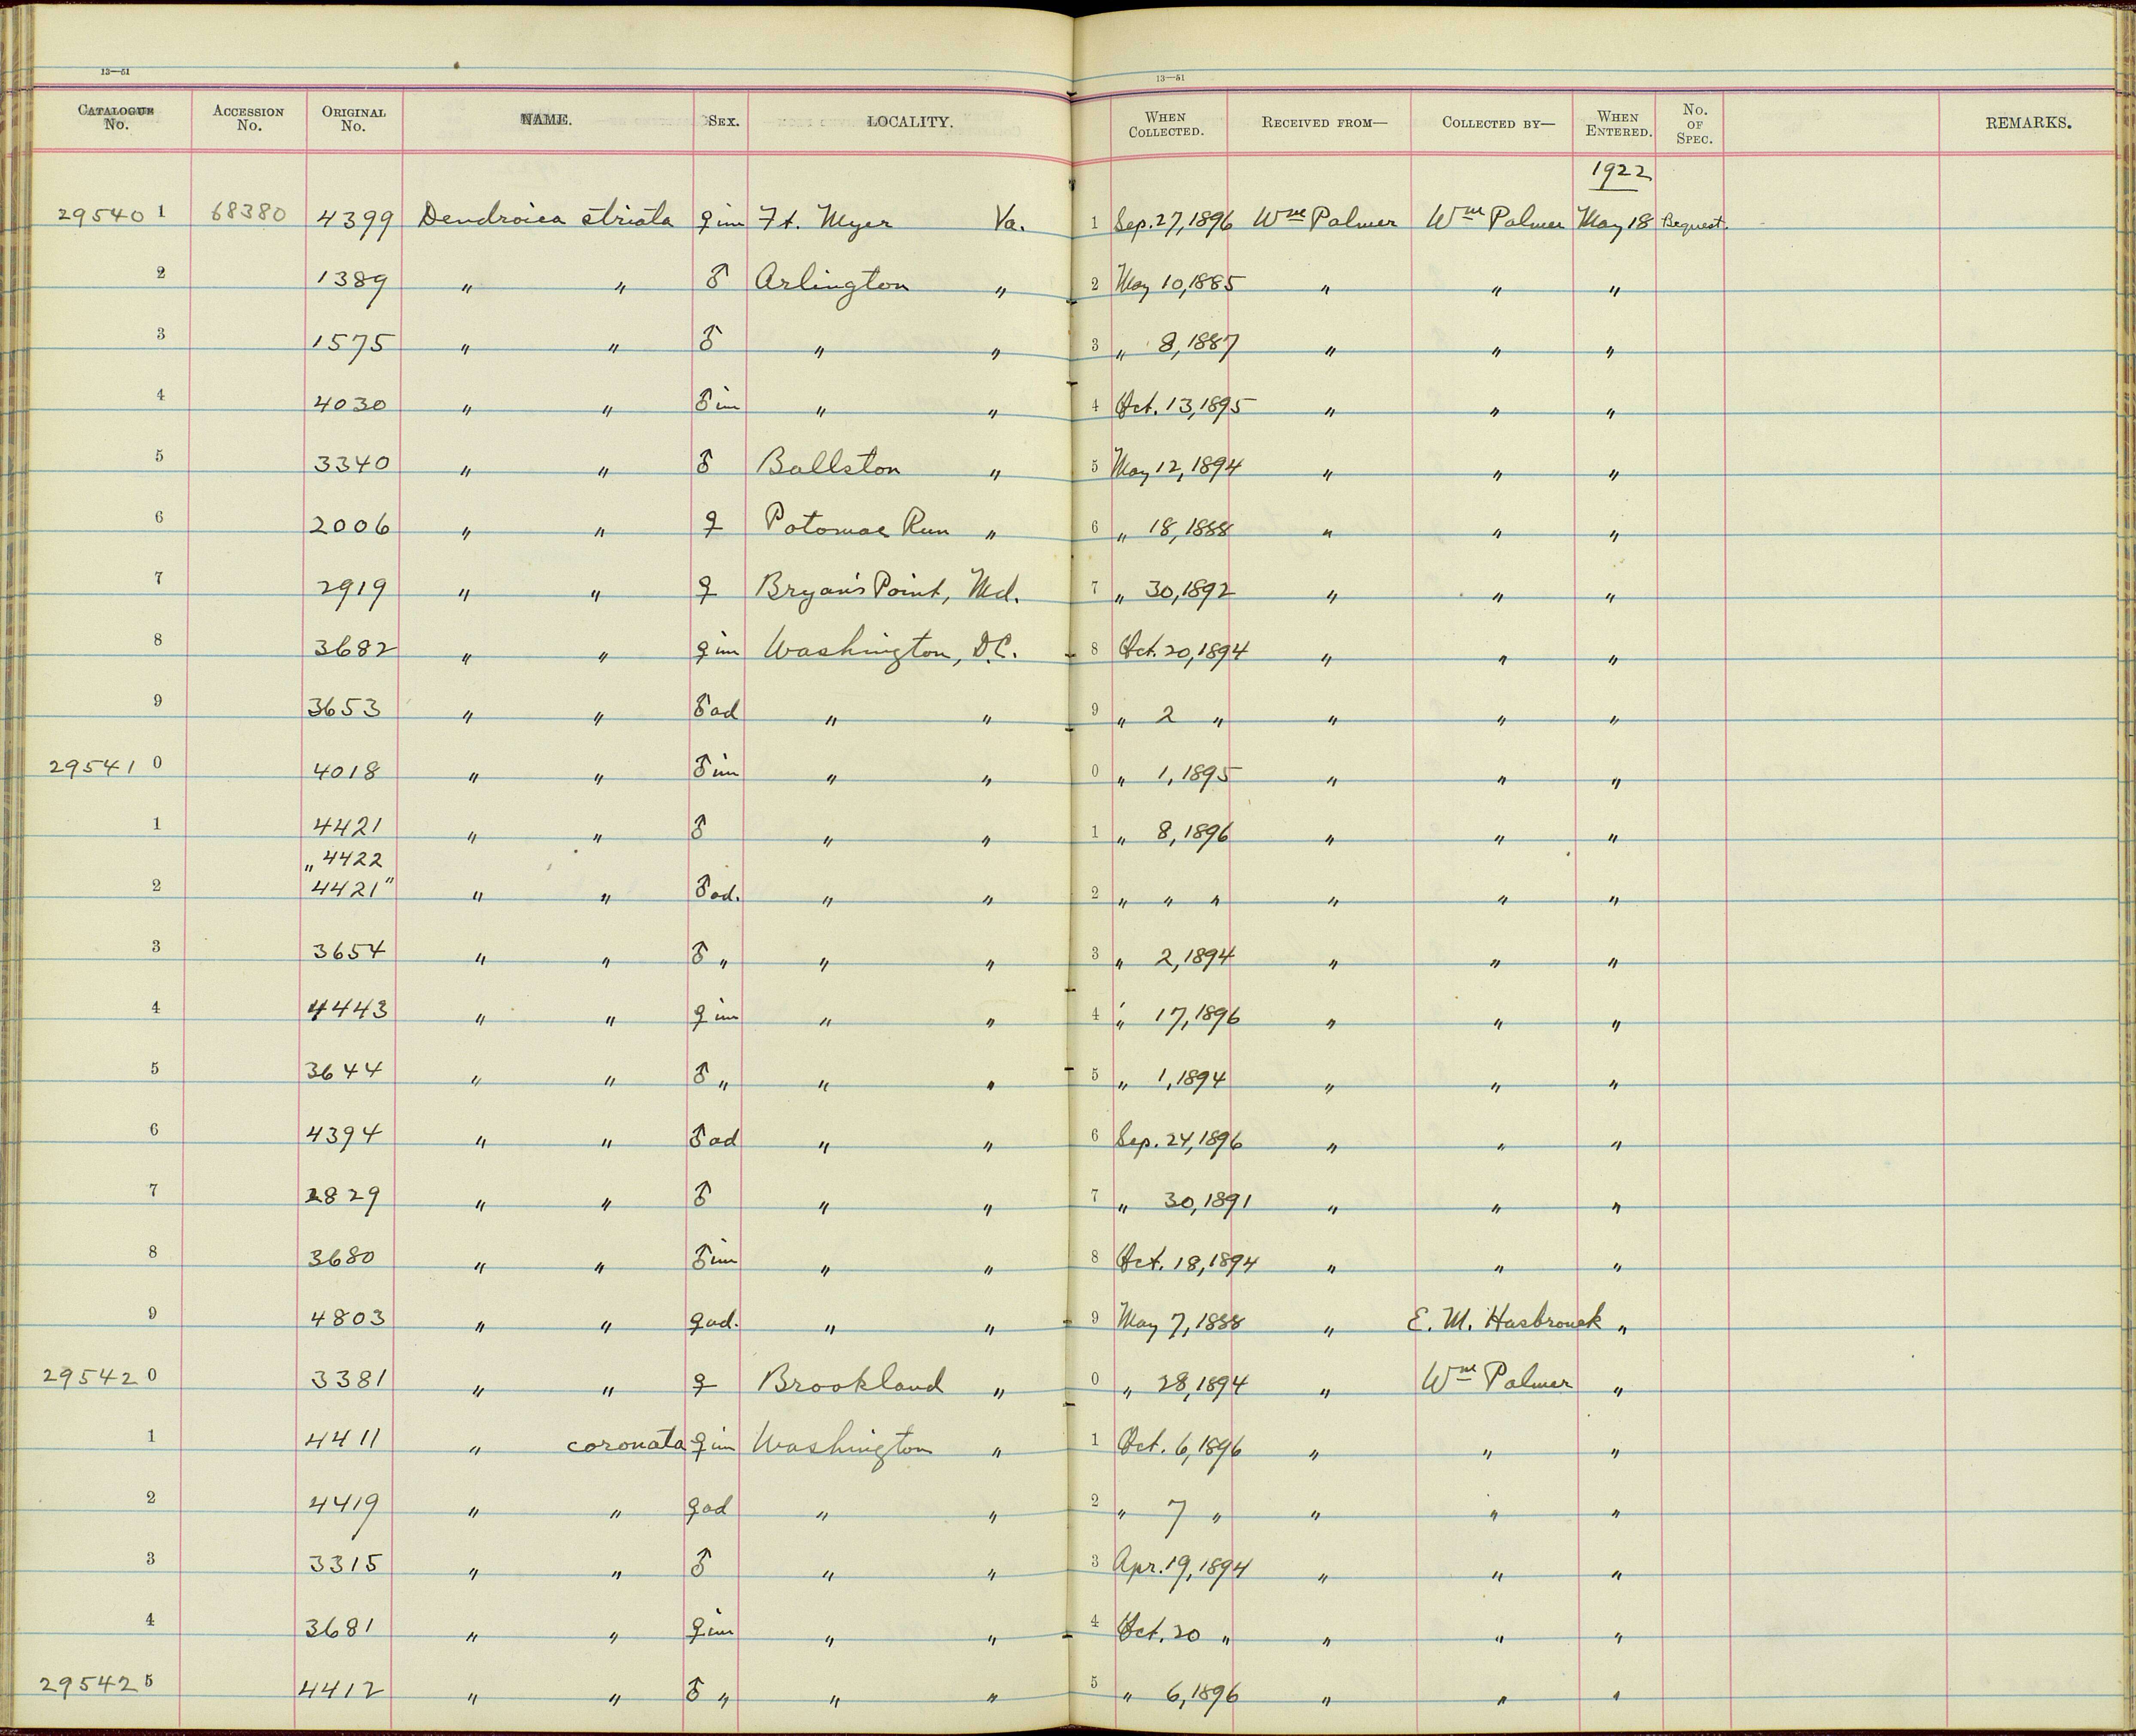 13—51 13—51
CATALOGUE No. ACCESSION No. ORIGINAL No. NAME. SEX. LOCALITY. WHEN COLLECTED. RECEIVED FROM— COLLECTED BY— WHEN ENTERED. No. OF SPEC. REMARKS.
1922
295401 68380 4399 Dendroica striata ♀ im Ft. Myer Va. 1 Sep. 27, 1896 Wm Palmer Wm Palmer May 18 Bequest.
2 1389 " " ♂ Arlington " 2 May 10, 1885 " " "
3 1575 " " ♂ " " 3 " 8, 1887 " " "
4 4030 " " ♂ im " " 4 Oct. 13, 1895 " " "
5 3340 " " ♂ Ballston " 5 May 12, 1894 " " "
6 2006 " " ♀ Potomac Run " 6 " 18, 1888 " " "
7 2919 " " ♀ Bryan's Point, Md. 7 " 30, 1892 " " "
8 3682 " " ♀ im Washington, D.C. 8 Oct. 20, 1894 " " "
9 3653 " " ♂ ad " " 9 " 2 " " " "
295410 4018 " " ♂ im " " 0 " 1, 1895 " " "
1 4421 " " ♂ " " 1 " 8, 1896 " " "
" 4422
2 4421" " " ♂ ad. " " 2 " " " " " "
3 3654 " " ♂ " " " 3 " 2, 1894 " " "
4 4443 " " ♀ im " " 4 " 17, 1896 " " "
5 3644 " " ♂ " " " 5 " 1, 1894 " " "
6 4394 " " ♂ ad " " 6 Sep. 24, 1896 " " "
7 2829 " " ♂ " " 7 " 30, 1891 " " "
8 3680 " " ♂ im " " 8 Oct. 18, 1894 " " "
9 4803 " " ♀ ad. " " 9 May 7, 1888 " E. M. Hasbrouck "
295420 3381 " " ♀ Brookland " 0 " 28, 1894 " Wm Palmer "
1 4411 " coronata ♀ im Washington " 1 Oct. 6, 1896 " " "
2 4419 " " ♀ ad " " 2 " 7 " " " "
3 3315 " " ♂ " " 3 Apr. 19, 1894 " " "
4 3681 " " ♀ im " " 4 Oct. 20 " " " "
295425 4412 " " ♂ " " " 5 " 6, 1896 " " "